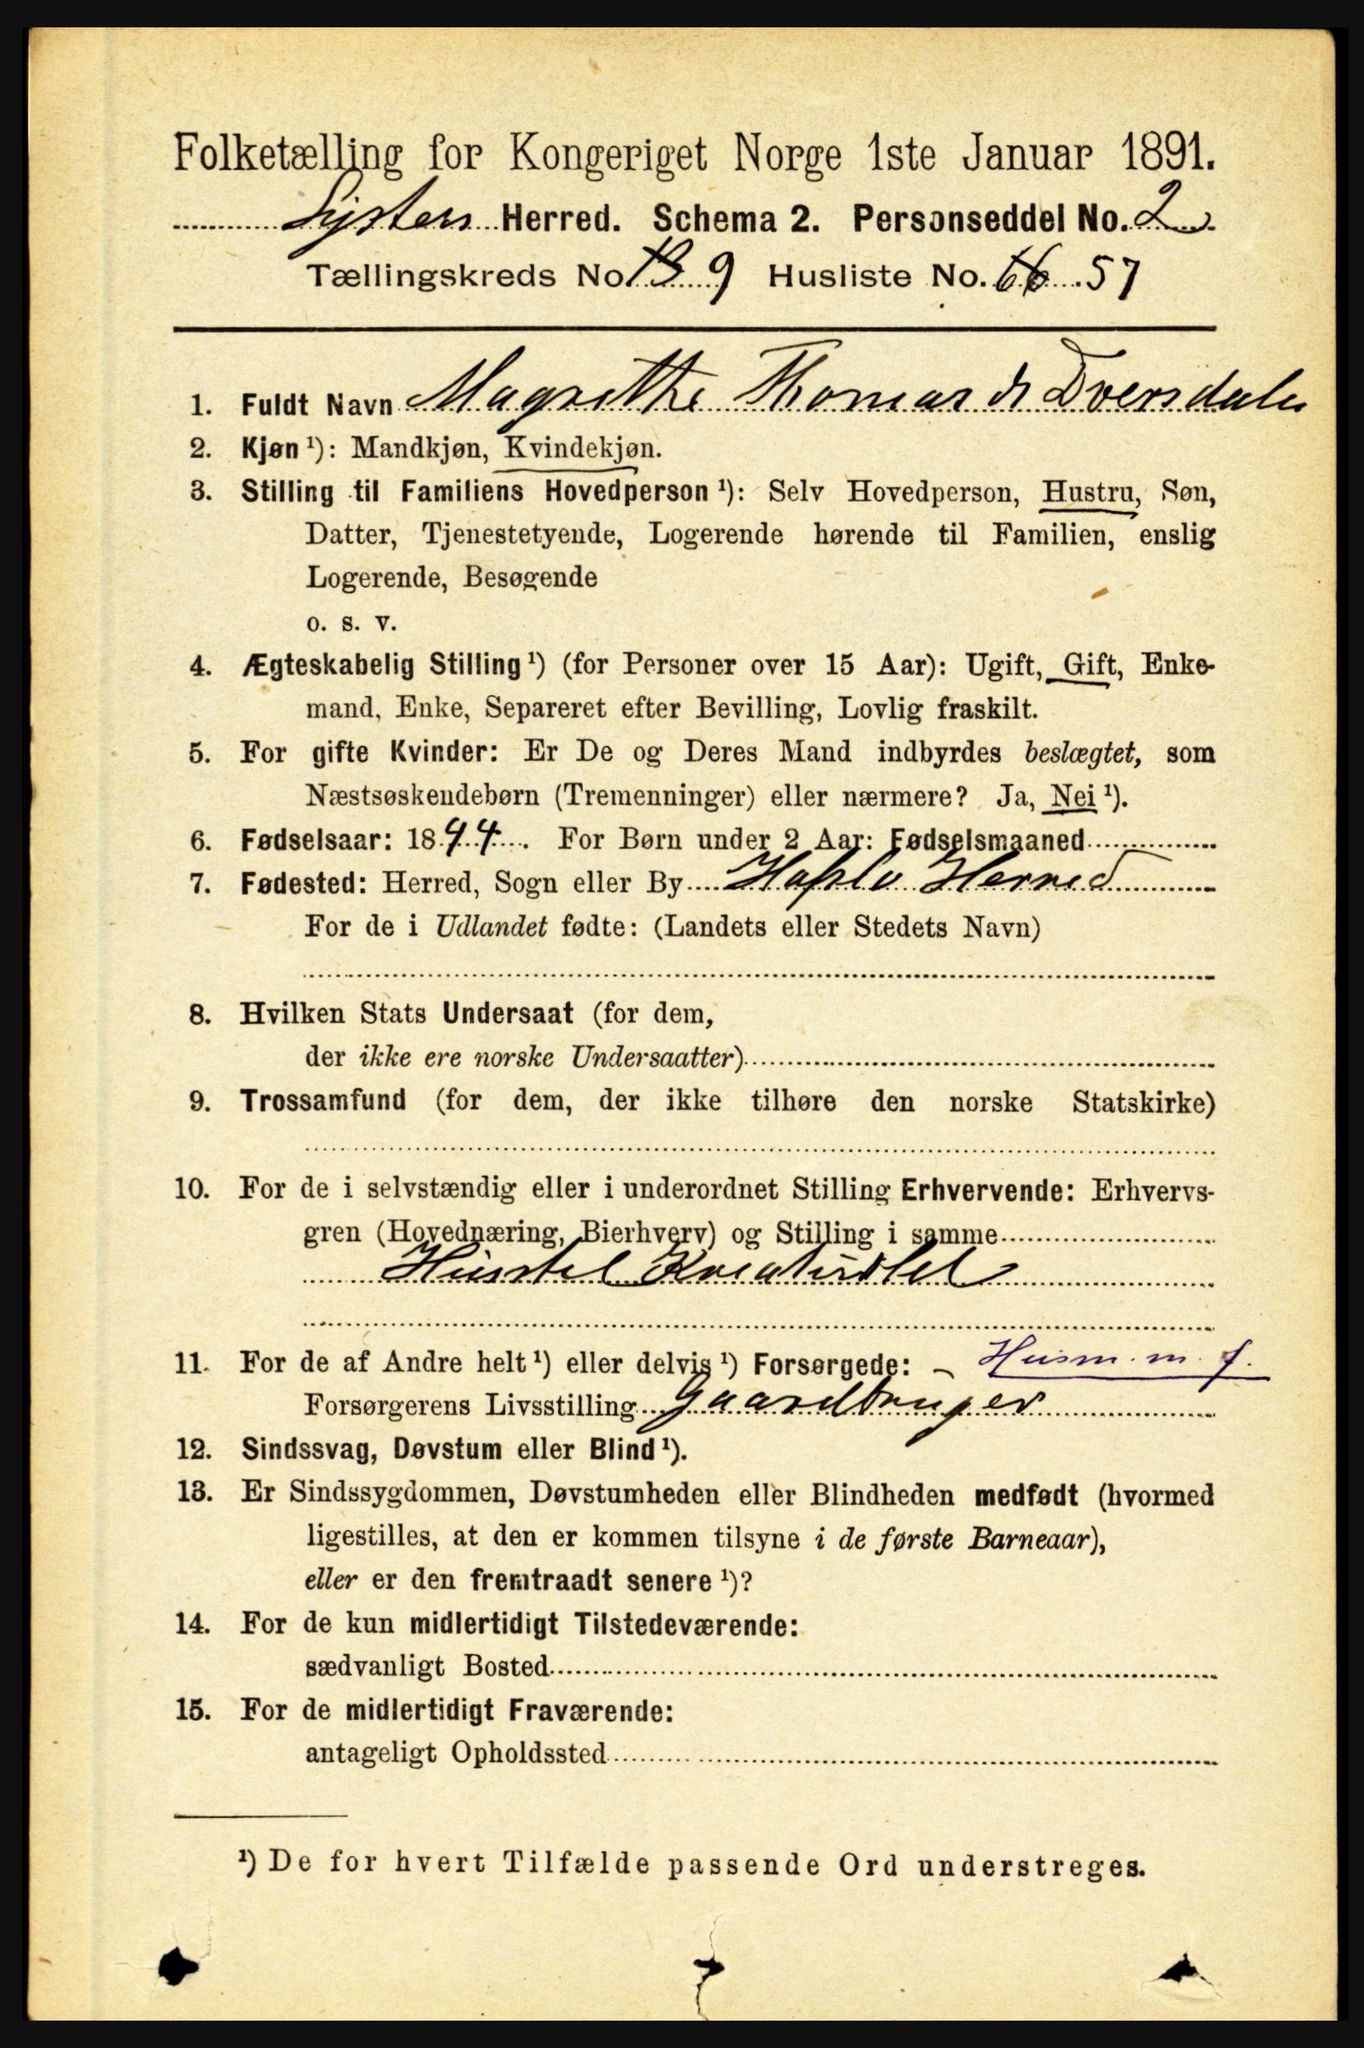 Folketælling for Kongeriget Norge 1ste Januar 1891.
Lyster Herred. Schema 2. Personseddel No. 2
Tællingskreds No. 13 9 Husliste No. 66 57
1. Fuldt Navn Magrethe Thomas d. Dversdalen
2. Kjøn ¹): Mandkjøn, Kvindekjøn.
3. Stilling til Familiens Hovedperson ¹): Selv Hovedperson, Hustru, Søn,
Datter, Tjenestetyende, Logerende hørende til Familien, enslig
Logerende, Besøgende
o. s. v.
4. Ægteskabelig Stilling ¹) (for Personer over 15 Aar): Ugift, Gift, Enke-
mand, Enke, Separeret efter Bevilling, Lovlig fraskilt.
5. For gifte Kvinder: Er De og Deres Mand indbyrdes beslægtet, som
Næstsøskendebørn (Tremenninger) eller nærmere? Ja, Nei ¹).
6. Fødselsaar: 1844. For Børn under 2 Aar: Fødselsmaaned
7. Fødested: Herred, Sogn eller By Hafslo Herred
For de i Udlandet fødte: (Landets eller Stedets Navn)
8. Hvilken Stats Undersaat (for dem,
der ikke ere norske Undersaatter)
9. Trossamfund (for dem, der ikke tilhøre den norske Statskirke)
10. For de i selvstændig eller i underordnet Stilling Erhvervende: Erhvervs-
gren (Hovednæring, Bierhverv) og Stilling i samme
Husstel Kreaturstel
11. For de af Andre helt ¹) eller delvis ¹) Forsørgede: - Husm. m. j.
Forsørgerens Livsstilling Gaardbruger
12. Sindssvag, Døvstum eller Blind ¹).
13. Er Sindssygdommen, Døvstumheden eller Blindheden medfødt (hvormed
ligestilles, at den er kommen tilsyne i de første Barneaar),
eller er den fremtraadt senere ¹)?
14. For de kun midlertidigt Tilstedeværende:
sædvanligt Bosted
15. For de midlertidigt Fraværende:
antageligt Opholdssted
¹) De for hvert Tilfælde passende Ord understreges.